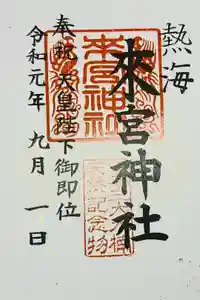 熱海
來宮神社
來宮神社
奉祝 天皇陛下御即位
令和元年 九月 一日